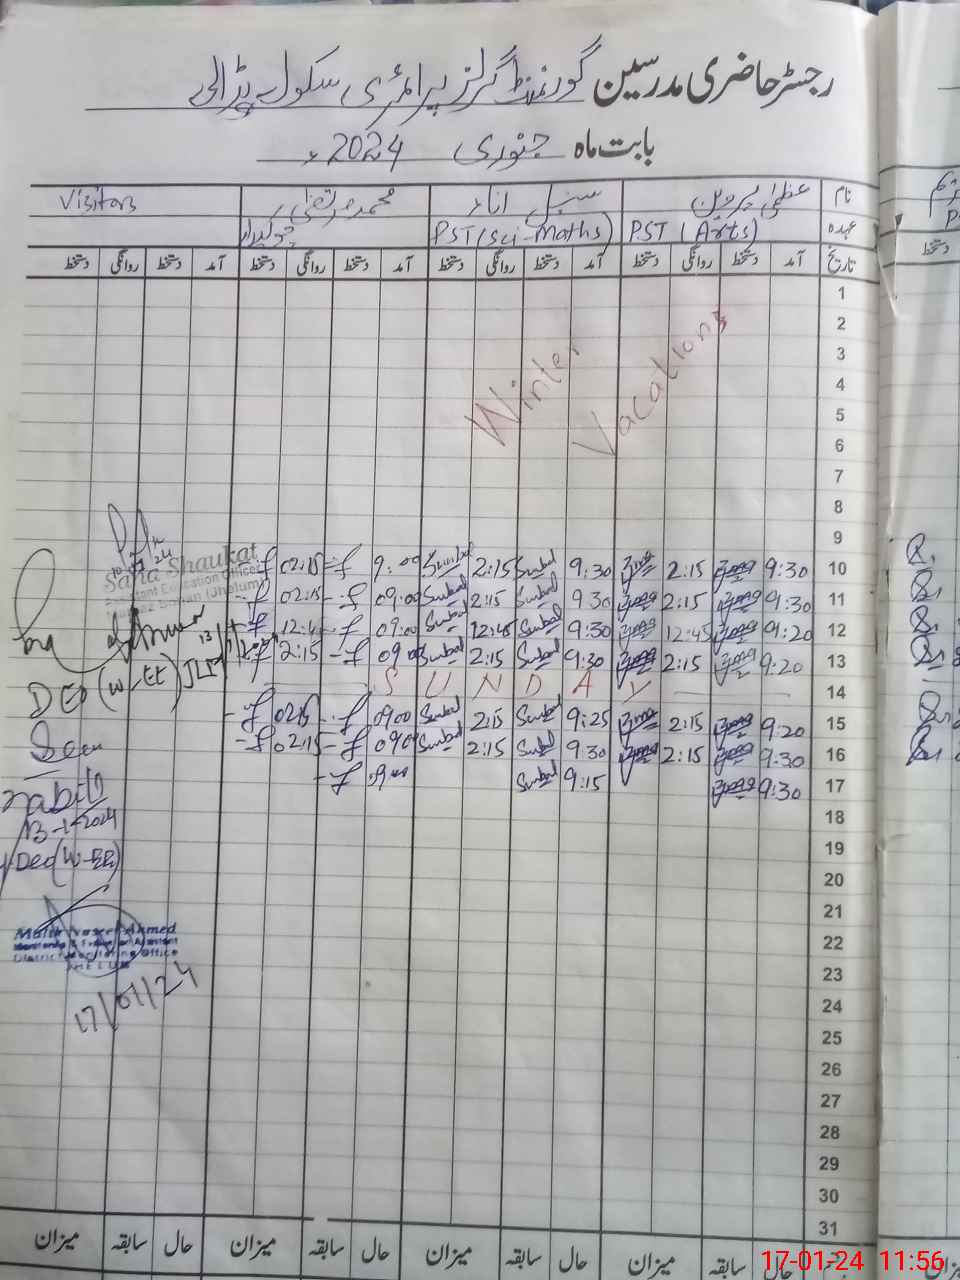 رجسٹر حاضری مدرسین گورنمنٹ گرلز پرائمری سکول پڈالی
بابت ماہ جنوری 2024ء
نام عظمیٰ پروین سنبل محمد مرتضیٰ Visitors
عہدہ PST (Arts) PST (Sci-Maths) چوکیدار
تاریخ آمد دستخط روانگی دستخط آمد دستخط روانگی دستخط آمد دستخط روانگی دستخط آمد دستخط روانگی دستخط
1
2
3
4
5
6
7
8
9
Winter Vacations
10 9:30 2:15 9:30 Sunbal 2:15 Sunbal 9:00 02:15
11 9:30 2:15 9:30 Sunbal 2:15 Sunbal 09:00 02:15
12 9:20 12:45 9:30 Sunbal 12:45 Sunbal 09:00 12:45
13 9:20 2:15 9:30 Sunbal 2:15 Sunbal 09:00 2:15
14 SUNDAY
15 9:20 2:15 9:25 Sunbal 2:15 Sunbal 09:00 02:15
16 9:30 2:15 9:30 Sunbal 2:15 Sunbal 09:00 02:15
17 9:30 9:15 Sunbal 9:00
18
19
20
21
22
23
24
25
26
27
28
29
30
31
Sana Shaukat
Assistant Education Officer
(Jhelum)
DEO (W-EE) JLM
13-1-2024
Deo (W-EE)
Malik Naseer Ahmed
Monitoring & Evaluation Assistant
District Monitoring Office
JHELUM
17/01/24
حال سابقہ میزان حال سابقہ میزان حال سابقہ میزان حال سابقہ میزان
17-01-24 11:56